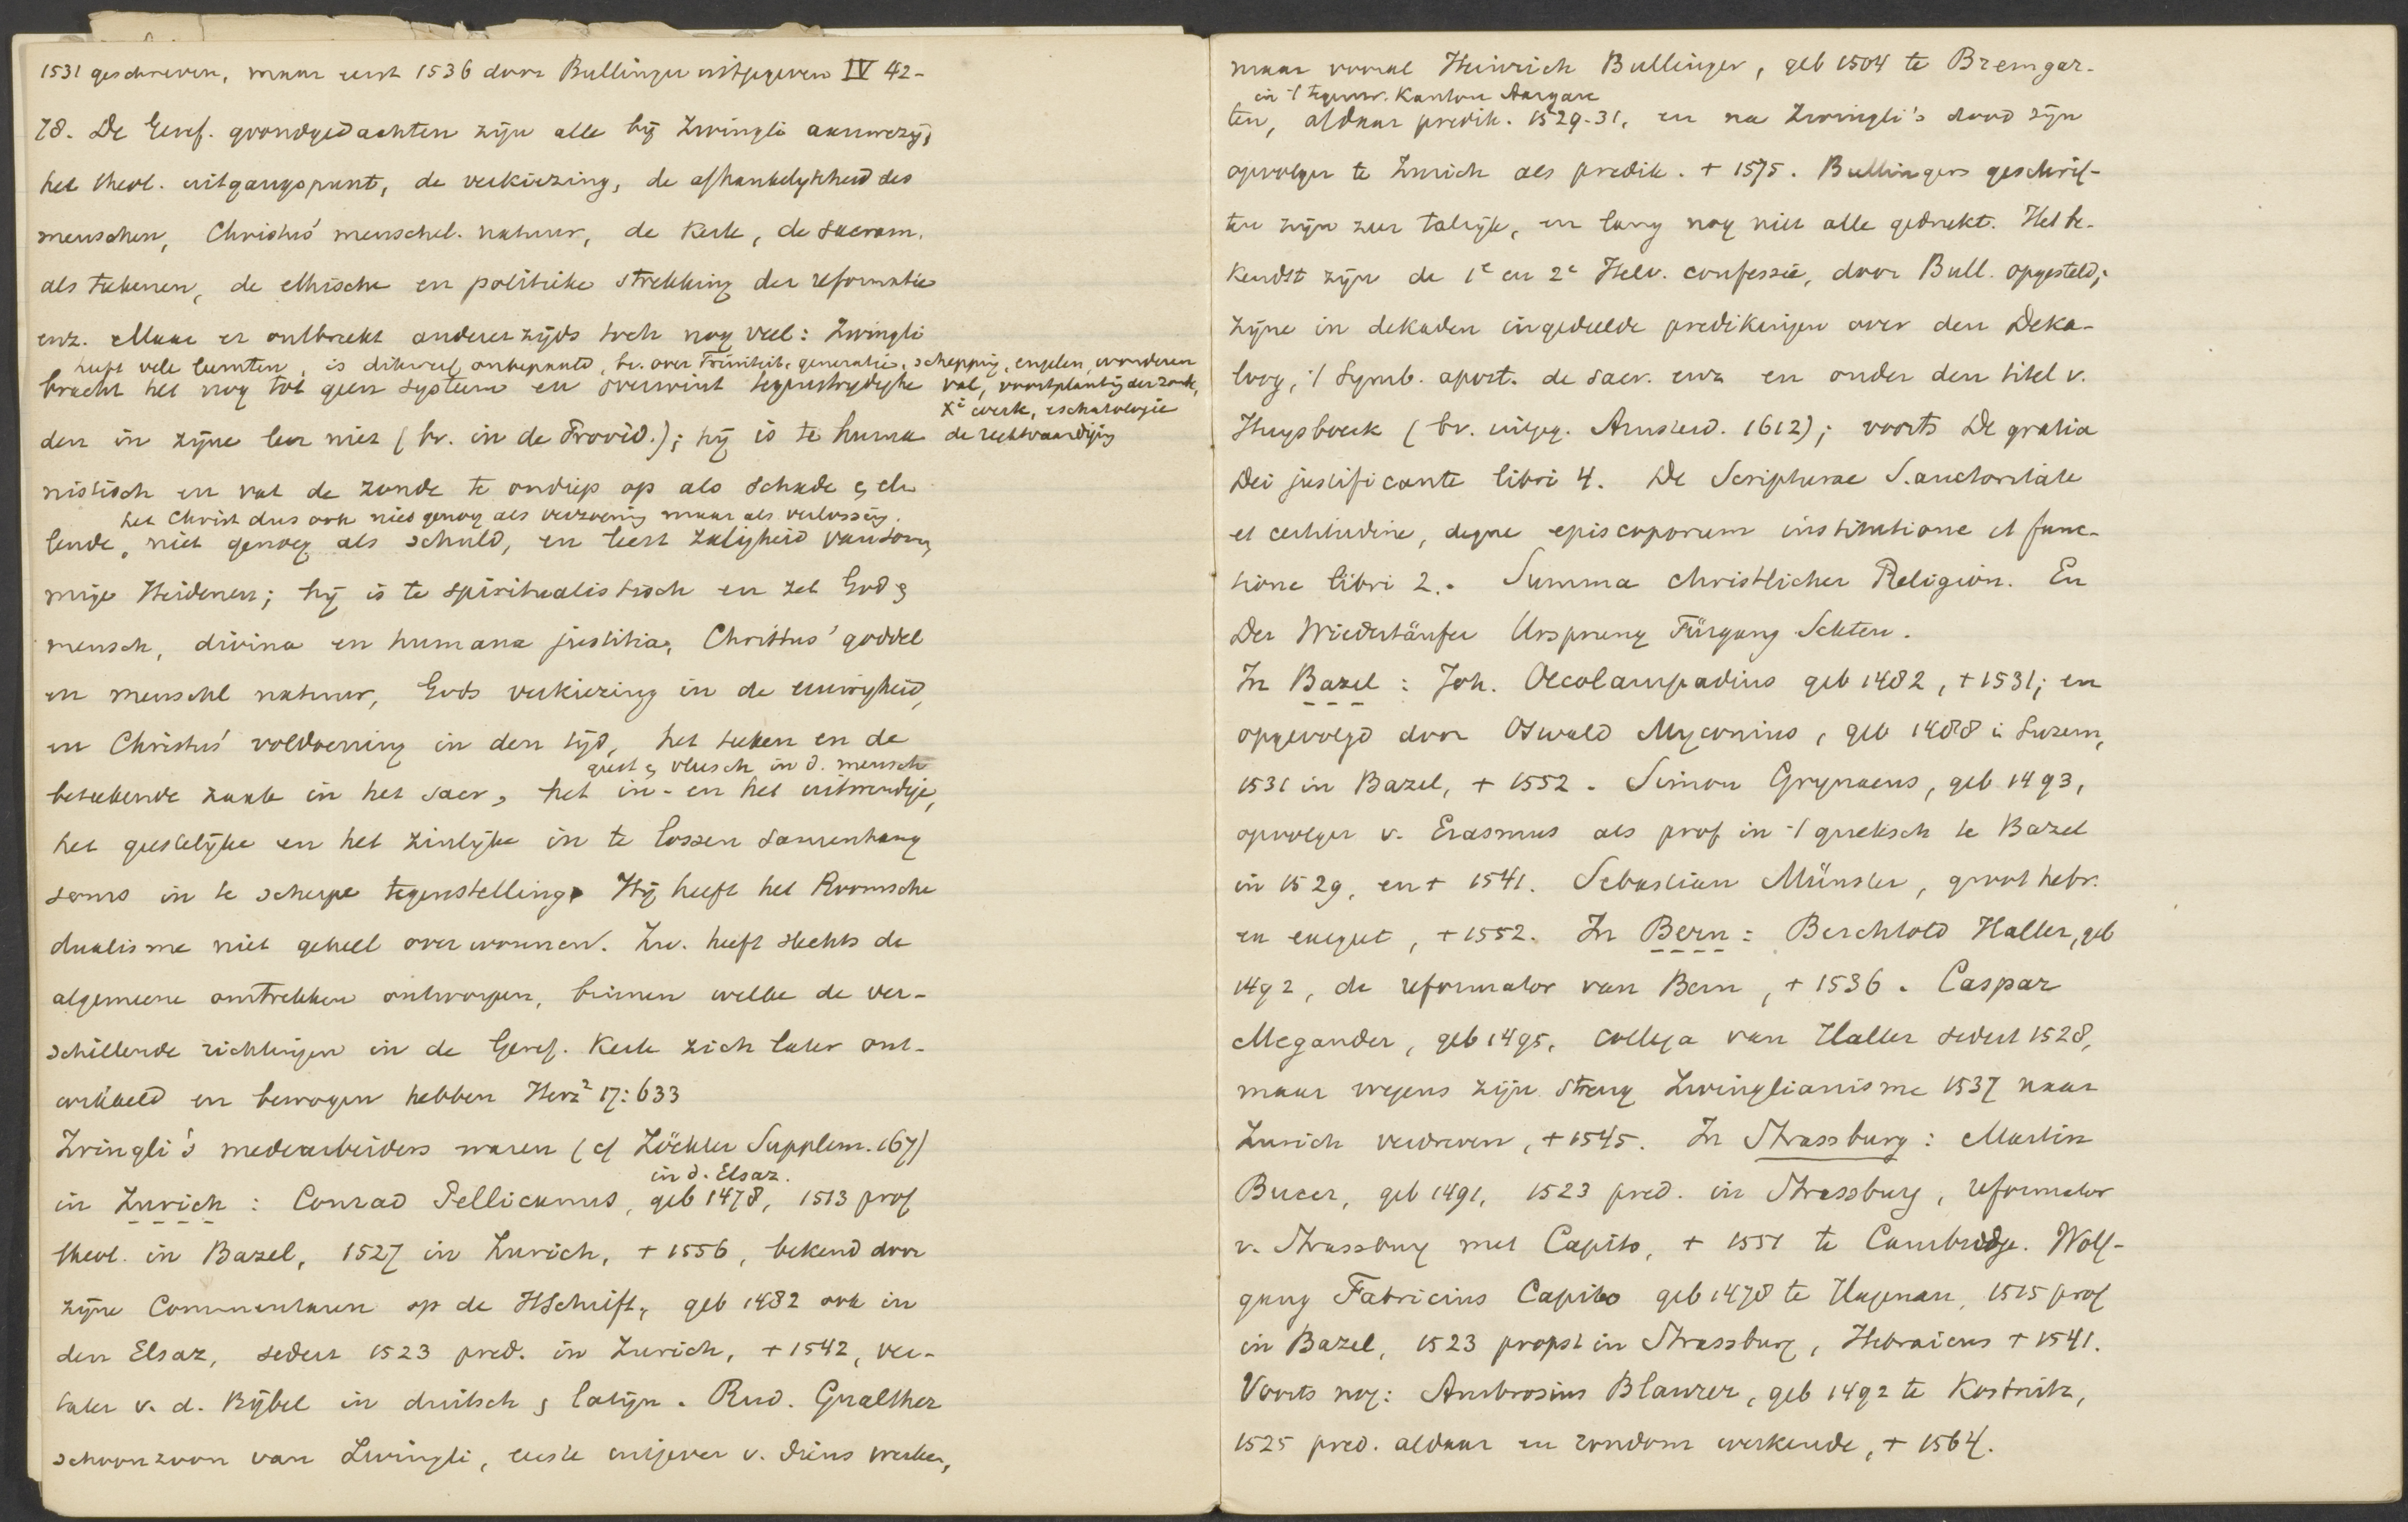 1531 geschreven, maar eerst 1536 door Bullinger uitgegeven IV 42-
78. De Geref. grondgedachten zijn alle bij Zwingli aanwezig,
het theol. uitgangspunt, de verkiezing, de afhankelijkheid des
menschen, Christus' menschel. natuur, de Kerk, de sacram.
als teekenen, de ethische en politieke strekking der reformatie
enz. Maar er ontbreekt anderer zijds toch nog veel: Zwingli
heeft vele leemten, is dikwerf onbepaald, bv. over Triniteit, generatie, schepping, engelen, wonderen
val, voortplanting der zonde,
Xi werk, eschatologie
de rechtvaardiging
bracht het nog tot geen systeem en overwint tegenstrydighe
den in zijne leer niet (bv. in de Provid.); hij is te huma
nistisch en vat de zonde te ondiep op als schade & el
het Christ dus ook niet genoeg als verzoening maar als verlossing.
lende, niet genoeg als schuld, en leert zaligheid van som
mige Heidenen; hij is te spiritualistisch en zet God &
mensch, divina en humana justitia, Christus' goddel
en menschel natuur, Gods verkiezing in de eeuwigheid,
en Christus' voldoening in den tijd, het teeken en de
geest & vleesch in d. mensch
beteekende zaak in het sacr, het in- en het uitwendige,
het geestelijke en het zinlijke in te lossen samenhang
soms in te scherpe tegenstelling. Hij heeft het Roomsche
dualisme niet geheel overwonnen. Zw. heeft slechts de
algemeene omtrekken ontworpen, binnen welke de ver-
schillende richtingen in de Geref. Kerk zich later ont-
wikkeld en bewogen hebben Herz² 17:633
Zwingli's medearbeiders waren (cf Zöckler Supplem. 167)
in d. Elsaz.
in Zurich: Conrad Pellicanus, geb 1478, 1513 prof
theol. in Bazel, 1527 in Zurich, + 1556, bekend door
zijne Commentaren op de HSchrift, geb 1482 ook in
den Elsaz, sedert 1523 pred. in Zurich, + 1542, ver-
taler v. d. Bijbel in duitsch & latijn. Rud. Gualther
schoonzoon van Zwingli, eerste uitgever v. diens werken,
maar vooral Heinrich Bullinger, geb 1504 te Bremgar-
in 't tegenw. Kanton Aargau
ten, aldaar predik. 1529-31, en na Zwingli's dood zijn
opvolger te Zurich als predik. + 1575. Bullingers geschrif-
ten zijn zeer talrijk, en lang nog niet alle gedrukt. Het be-
kendst zijn de 1e en 2e Helv. confessie, door Bull. opgesteld;
zijne in dekaden ingedeelde predikingen over den Deka-
loog, 't Symb. apost. de sacr. enz en onder den titel v.
Huysboeck (bv. uitgeg. Amsterd. 1612); voorts De gratia
Dei justificante libri 4. De Scripturae S. auctoritate
et certitudine, deque episcoporum institutione et func-
tione libri 2. Summa christlicher Religion. En
Der Wiedertäufer Ursprung Fürgang Sekten.
In Bazel: Joh. Oecolampadius geb 1482, + 1531; en
opgevolgd door Oswald Myconius, geb 1488 i Luzern,
1531 in Bazel, + 1552. Simon Grynaeus, geb 1493,
opvolger v. Erasmus als prof in 't grieksch te Bazel
in 1529, en + 1541. Sebastian Münster, groot hebr.
en exegeet, + 1552. In Bern: Berchtold Haller, geb
1492, de reformator van Bern, + 1536. Caspar
Megander, geb 1495, collega van Haller sedert 1528,
maar wegens zijn streng Zwinglianisme 1537 naar
Zurich verdreven, + 1545. In Strassburg: Martin
Bucer, geb 1491, 1523 pred. in Strassburg, reformator
v. Strassburg met Capito, + 1551 te Cambridge. Wolf-
gang Fabricius Capito geb 1478 te Hagenau, 1515 prof
in Bazel, 1523 propst in Strassburg, Hebraicus + 1541.
Voorts nog: Ambrosius Blaurer, geb 1492 te Kostnitz,
1525 pred. aldaar en rondom werkende, + 1564.